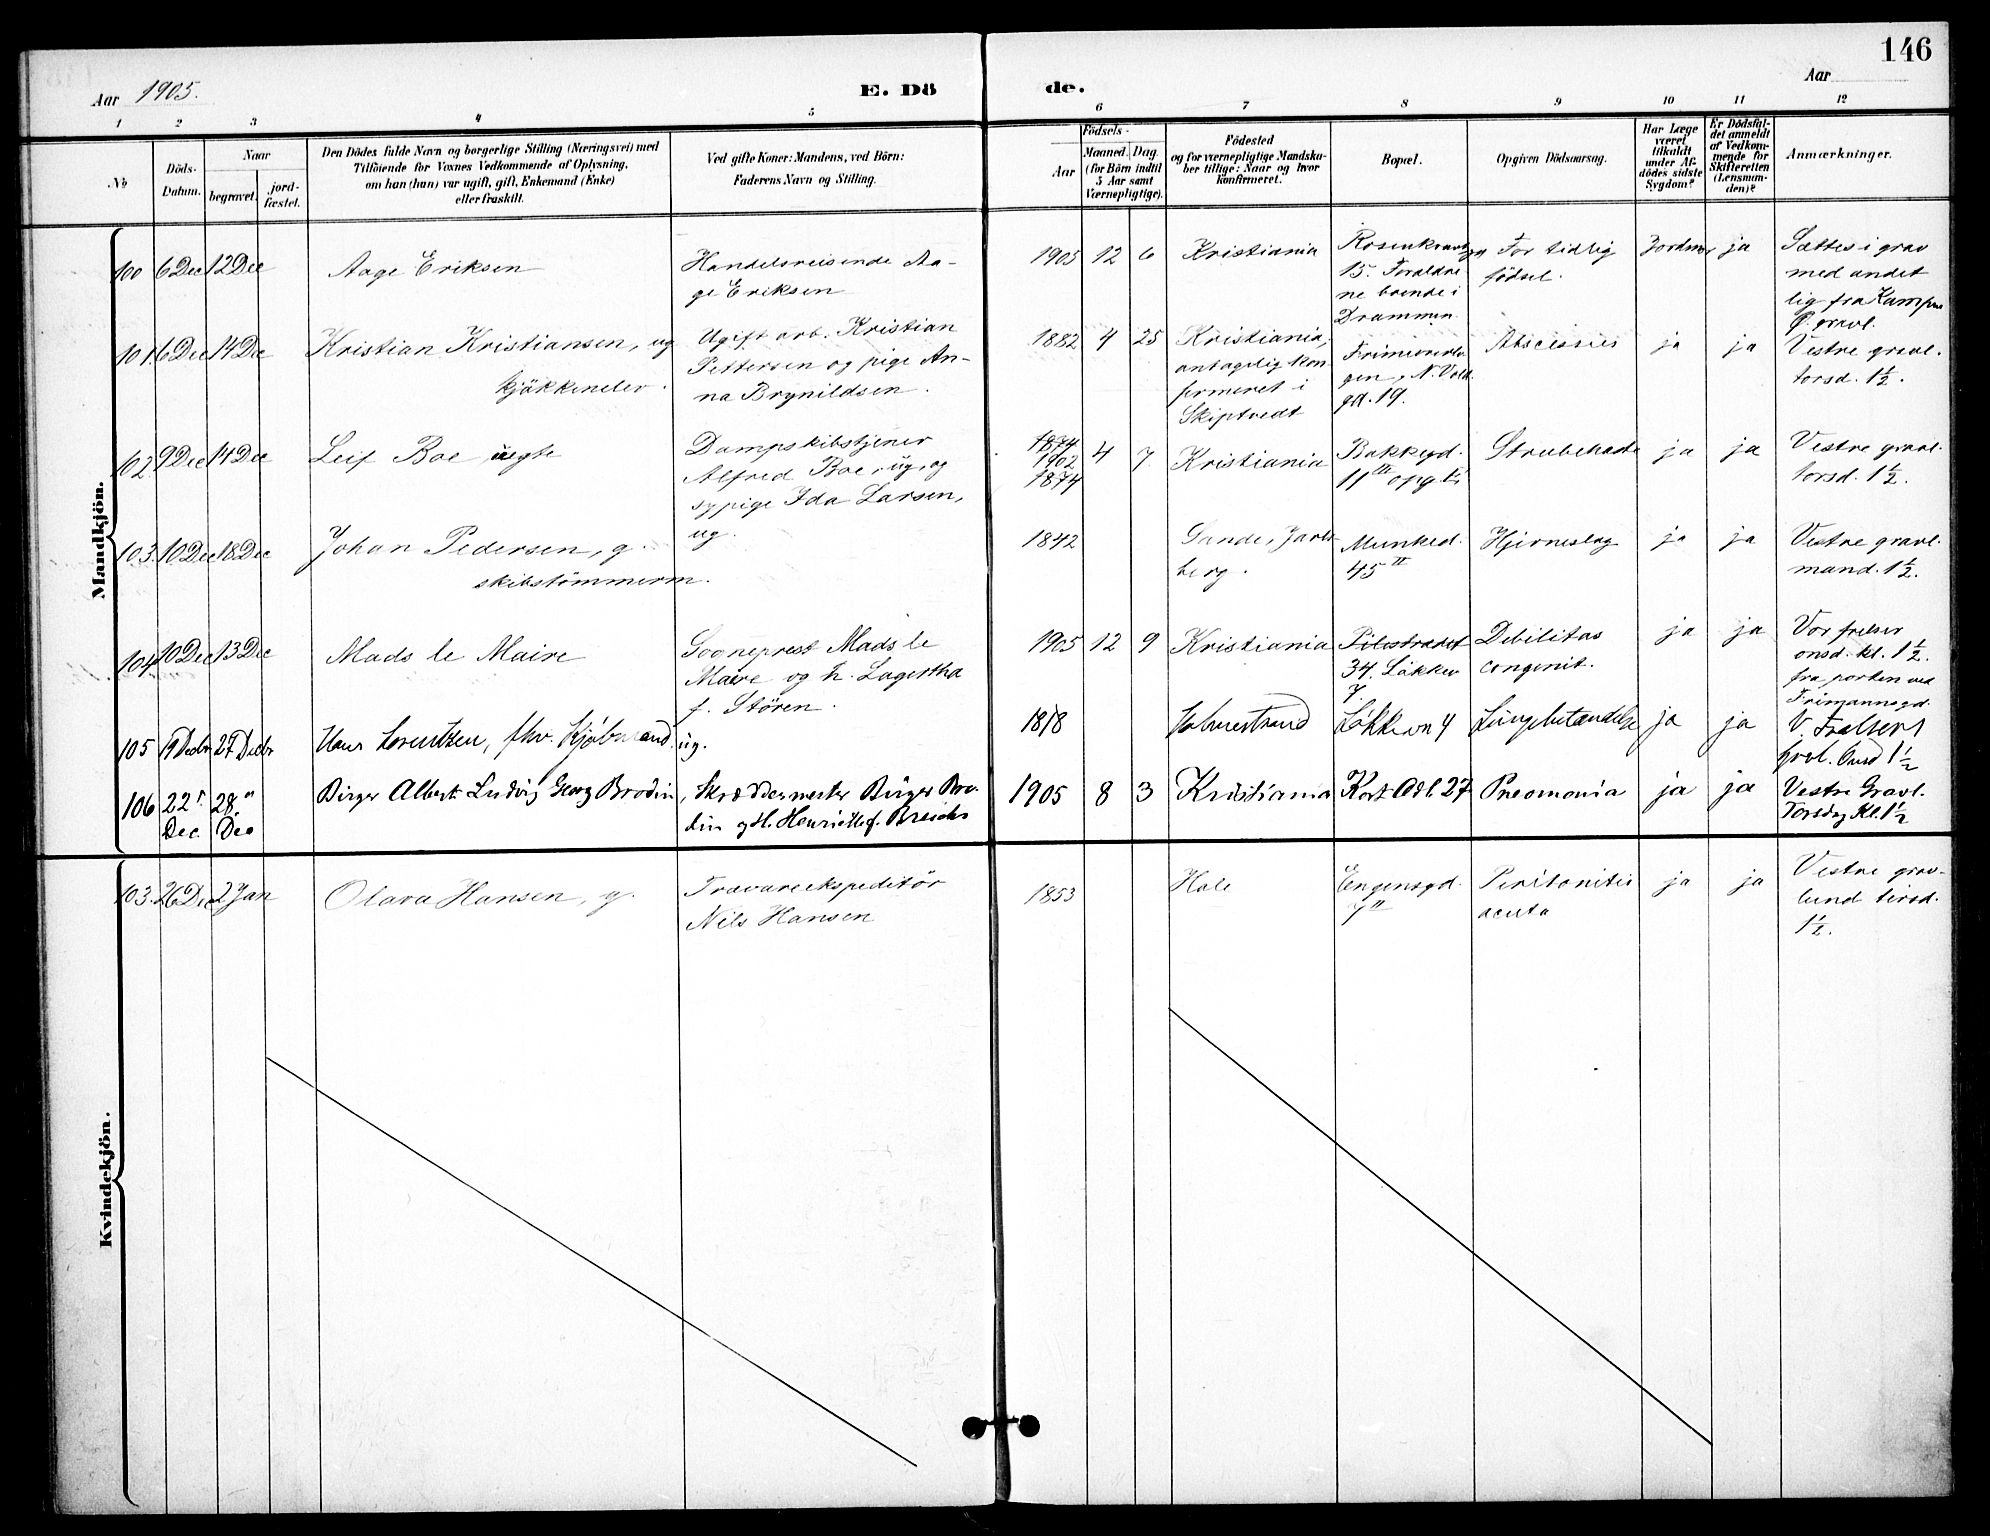 146
Aar 1905.
E. Dö
de.
Aar
1 2 3 4 5 6 7 8 9 10 11 12
No
Döds-
Datum.
Naar
begravet.
jord-
fæstet.
Den Dödes fulde Navn og borgerlige Stilling (Næringsvei) med
Tilföiende for Voxnes Vedkommende af Oplysning,
om han (hun) var ugift, gift, Enkemand (Enke)
eller fraskilt.
Ved gifte Koner: Mandens, ved Börn:
Faderens Navn og Stilling.
Födsels-
Aar
Maaned.
Dag
(for Börn indtil
5 Aar samt
Værnepligtige).
Födested
og for værnepligtige Mandska-
ber tillige: Naar og hvor
konfirmeret.
Bopæl.
Opgiven Dödsaarsag.
Har Læge
været
tilkaldt
under Af-
dödes sidste
Sygdom?
Er Dödsfal-
det anmeldt
af Vedkom-
mende for
Skifteretten
(Lensman-
den)?
Anmærkninger.
Mandkjön.
100 6 Dec 12 Dec
Aage Eriksen
Handelsreisende Aa-
ge Eriksen
1905 12 6
Kristiania
15. Foraldre
ne boende i
Drammen
For tidlig
födsel.
Jordmor
ja
Sættes i grav
med andet
lig fra Kampen
Ø. gravl.
101. 6 Dec 14 Dec
Kristian Kristiansen, ug
kjökkenelev.
Ugift arb. Kristian
Pettersen og pige An-
na Brynildsen.
1882 4 25
Kristiania,
antagelig kon
firmeret i
Skiptvedt
gen, N. Vold.
gd. 19.
ja
ja
Vestre gravl.
torsd. 1½.
102 9 Dec 14 Dec
Leif Boe, uegte
Dampskibstjener
Alfred Boe, ug, og
sypige Ida Larsen,
ug.
1874
1902
1874
4 7
Kristiania
Bakkegd.
11 III opg
Strubehoste
ja
ja
Vestre gravl.
torsd. 1½.
103. 10 Dec 18 Dec
Johan Pedersen, g.
skibstömmerm.
1842
Sande, Jarls
berg.
Munked.
45 II
Hjerneslag
ja
ja
Vestre gravl.
mand. 1½.
104 10 Dec 13 Dec
Mads le Maire
Sogneprest Mads le
Maire og h. Lagertha
f. Stören.
1905 12 9
Kristiania
Pilestrædet
34. Lökken
7.
Debilitas
congenit.
ja
ja
Vor frelser
onsd. kl. 1½.
fra porten ved
Frimannsgd.
105 19 Decbr 27 Decbr
Hans Lorentzen, fhv. Kjöbmand. ug.
1818
Holmestrand
Løkkevn 4
Lungebetændelse
ja
ja
V. Frelsers
gravl. Onsd 1½
106 22 Dec. 28 Dec
Birger Albert Ludvig Georg Brodin
, Skræddermester Birger Bro-
din og H. Henriette f.
1905 8 3
Kristiania
Kort Adl. 27
Pneomonia
ja
ja
Vestre Gravl.
Torsdag Kl. 1½
Kvindekjön.
103. 26 Dec 2 Jan
Olava Hansen, g.
Travareekspeditör
Nils Hansen
1853
Hole
Engensgd.
7 II
Peritonitis
acuta
ja
ja
Vestre grav-
lund tirsd.
1½.